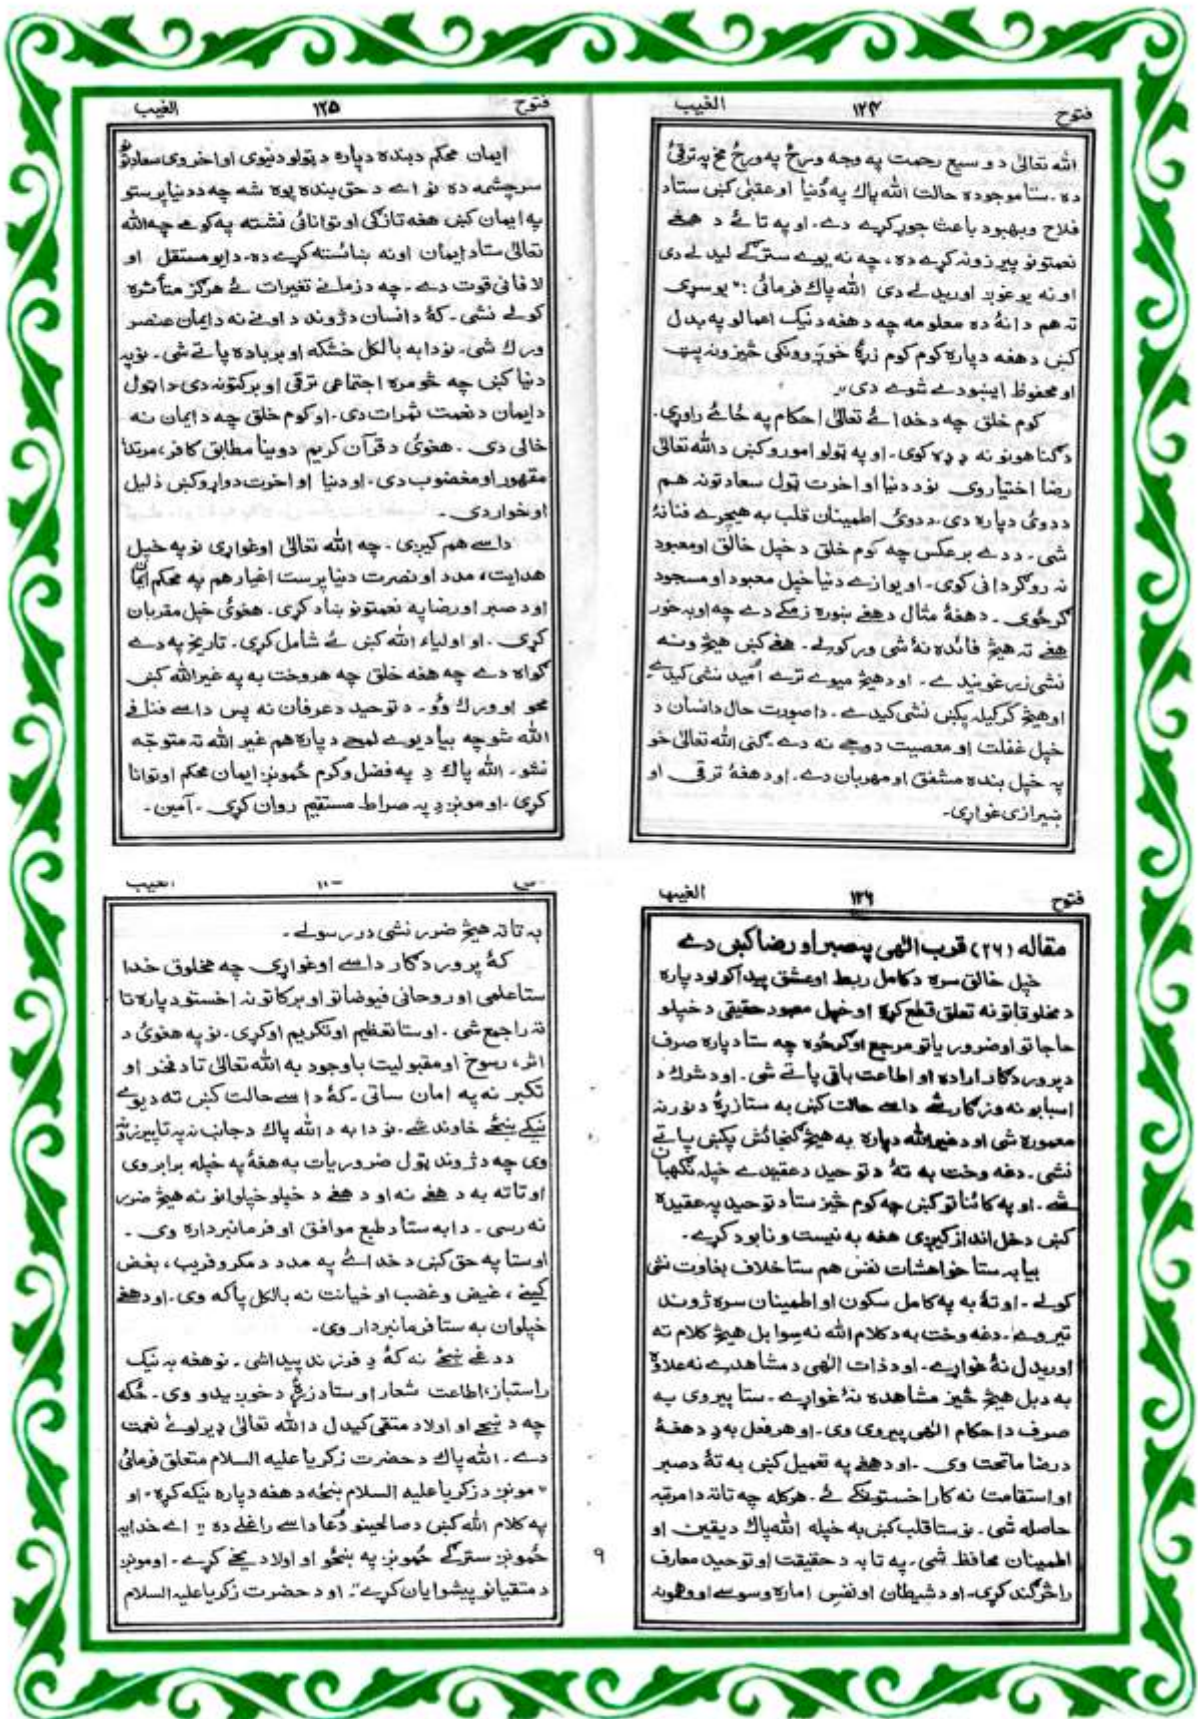 فتوح ١٢٤ الغيب
الله تعالیٰ د وسیع رحمت په وجه ورځ په ورځ مخ په ترقیٔ
ده۔ ستا موجوده حالت الله پاک په دُنیا او عقبیٰ کښ ستا د
فلاح وبهبود باعث جوړ کړے دے۔ او په تا ئے د هغے
نعمتونو پیرزونه کړے ده، چه نه یوے سترګے لیدلے دی
او نه یو غوږ اوریدلے دی الله پاک فرمائی :" یو سړی
ته هم دا نهٔ ده معلومه چه د هغه د نیک اعمالو په بدل
کښ د هغه دپاره کوم کوم زړهٔ خوږوونکی څیزونه پټ
او محفوظ ایښودے شوے دی"
کوم خلق چه د خدائے تعالیٰ احکام په ځائے راوړی۔
د ګناهونو نه ډډه کوی۔ او په ټولو امورو کښ د الله تعالیٰ
رضا اختیاروی نو د دنیا او اخرت ټول سعادتونه هم
د دویٔ دپاره دی۔ د دویٔ اطمینان قلب به هیچرے فنا نهٔ
شی۔ د دے برعکس چه کوم خلق د خپل خالق او معبود
نه روګردانی کوی۔ او یوازے دنیا خپل معبود او مسجود
ګرځوی۔ د هغهٔ مثال د هغے ښوره زمکے دے چه اوبه خور
هغے ته هیڅ فائده نهٔ شی ورکولے۔ هغے کښ هیڅ ونه
نشی زرغونیدے۔ او د هیڅ میوے ترے اُمید نشی کیدے
او هیڅ کرکیله پکښ نشی کیدے۔ دا صورت حال د انسان د
خپل غفلت او معصیت د وجے نه دے۔ ګنی الله تعالیٰ خو
په خپل بنده مشفق او مهربان دے۔ او د هغهٔ ترقی او
ښیرازی غواړی۔
فتوح ١٢٥ الغيب
ایمان محکم د بنده دپاره د ټولو دنیوی او اخروی سعادتونو
سرچشمه ده نو اے د حق بنده پوه شه چه د دنیا پرستو
په ایمان کښ هغه تازګی او توانائی نشته په کومے چه الله
تعالیٰ ستا د ایمان اونه ښائسته کړے ده۔ دا یو مستقل او
لافانی قوت دے۔ چه د زمانے تغیرات ئے هرګز متأثره
کولے نشی۔ کهٔ د انسان د ژوند د اونے نه د ایمان عنصر
ورک شی۔ نو دا به بالکل خشکه او برباده پاتے شی۔ نو په
دنیا کښ چه څومره اجتماعی ترقی او برکتونه دی۔ دا ټول
د ایمان د نعمت ثمرات دی۔ او کوم خلق چه د ایمان نه
خالی دی۔ هغویٔ د قرآن کریم د وینا مطابق کافر، مرتد،
مقهور او مغضوب دی۔ او دنیا او اخرت دواړو کښ ذلیل
او خوار دی۔
داسے هم کیږی۔ چه الله تعالیٰ اوغواړی نو په خپل
هدایت، مدد او نصرت دنیا پرست اغیار هم په محکم ایمان
او د صبر او رضا په نعمتونو ښاد کړی۔ هغویٔ خپل مقربان
کړی۔ او اولیاء الله کښ ئے شامل کړی۔ تاریخ په دے
ګواه دے چه هغه خلق چه هر وخت به په غیر الله کښ
محو او ورک وُو۔ د توحید د عرفان نه پس داسے فنا فی
الله شو چه بیا د یوے لمحے دپاره هم غیر الله ته متوجّه
نشو۔ الله پاک دِ په فضل وکرم ځمونږ ایمان محکم او توانا
کړی۔ او مونږ دِ په صراط مستقیم روان کړی۔ آمین۔
فتوح ١٢٦ الغيب
مقاله (٢٦) قرب الٰهی په صبر او رضا کښ دے
خپل خالق سره د کامل ربط او عشق پیدا کولو دپاره
د مخلوقاتو نه تعلق قطع کړه او خپل معبود حقیقی د خپلو
حاجاتو او ضروریاتو مرجع اوګرځوه چه ستا دپاره صرف
د پروردګار اراده او اطاعت باقی پاتے شی۔ او د شرک د
اسبابو نه وزګار شے داسے حالت کښ به ستا زړهٔ د نور نه
معموره شی او د غیر الله دپاره به هیڅ ګنجائش پکښ پاتے
نشی۔ دغه وخت به تهٔ د توحید د عقیدے خپله نګهبان
شے۔ او په کائناتو کښ چه کوم څیز ستا د توحید په عقیده
کښ دخل انداز کیږی هغه به نیست و نابود کړے۔
بیا به ستا خواهشات نفس هم ستا خلاف بغاوت نشی
کولے۔ او تهٔ به په کامل سکون او اطمینان سره ژوند
تیروے۔ دغه وخت به د کلام الله نه سِوا بل هیڅ کلام ته
اوریدل نهٔ غواړے۔ او د ذات الٰهی د مشاهدے نه علاوه
به د بل هیڅ څیز مشاهده نهٔ غواړے۔ ستا پیروی به
صرف د احکام الٰهی پیروی وی۔ او هر فعل به دِ د هغهٔ
د رضا ماتحت وی۔ او د هغے په تعمیل کښ به تهٔ د صبر
او استقامت نه کار اخستونکے ئے۔ هرکله چه تا ته دا مرتبه
حاصله شی۔ نو ستا قلب کښ به خپله الله پاک د یقین او
اطمینان محافظ شی۔ په تا به د حقیقت او توحید معارف
راڅرګند کړی۔ او د شیطان او نفس اماره وسوسے او وهمونه
الغيب
به تا ته هیڅ ضرر نشی در رسولے۔
کهٔ پروردګار داسے اوغواړی چه مخلوق خدا
ستا علمی او روحانی فیوضاتو او برکاتو نه اخستو دپاره تا
ته راجع شی۔ او ستا تعظیم او تکریم اوکړی۔ نو په هغویٔ د
اثر، رسوخ او مقبولیت باوجود به الله تعالیٰ تا د فخر او
تکبر نه په امان ساتی۔ کهٔ داسے حالت کښ ته د یوے
نیکے ښځے خاوند شے۔ نو دا به د الله پاک د جانب نه په تا پیرزونه
وی چه د ژوند ټول ضروریات به هغهٔ په خپله برابروی
او تا ته به د هغے نه او د هغے د خپلو خپلوانو نه هیڅ ضرر
نه رسی۔ دا به ستا د طبع موافق او فرمانبرداره وی۔
او ستا په حق کښ د خدائے په مدد د مکر و فریب، بغض
کینے، غیض و غضب او خیانت نه بالکل پاکه وی۔ او د هغے
خپلوان به ستا فرمانبردار وی۔
د دغے ښځے نه کهٔ دِ فرزند پیدا شی۔ نو هغه به نیک
راستباز، اطاعت شعار او ستا د زړهٔ د خوږیدو وی۔ ځکه
چه د ښځے او اولاد متقی کیدل د الله تعالیٰ ډیر لوئے نعمت
دے۔ الله پاک د حضرت زکریا علیه السلام متعلق فرمائی
"مونږ د زکریا علیه السلام ښځه د هغه دپاره نیکه کړه" او
په کلام الله کښ د صالحینو دُعا داسے راغلے ده "اے خدایه
ځمونږ سترګے ځمونږ په ښځو او اولاد یخے کړے۔ او مونږ
د متقیانو پیشوایان کړے"۔ او د حضرت زکریا علیه السلام
٩